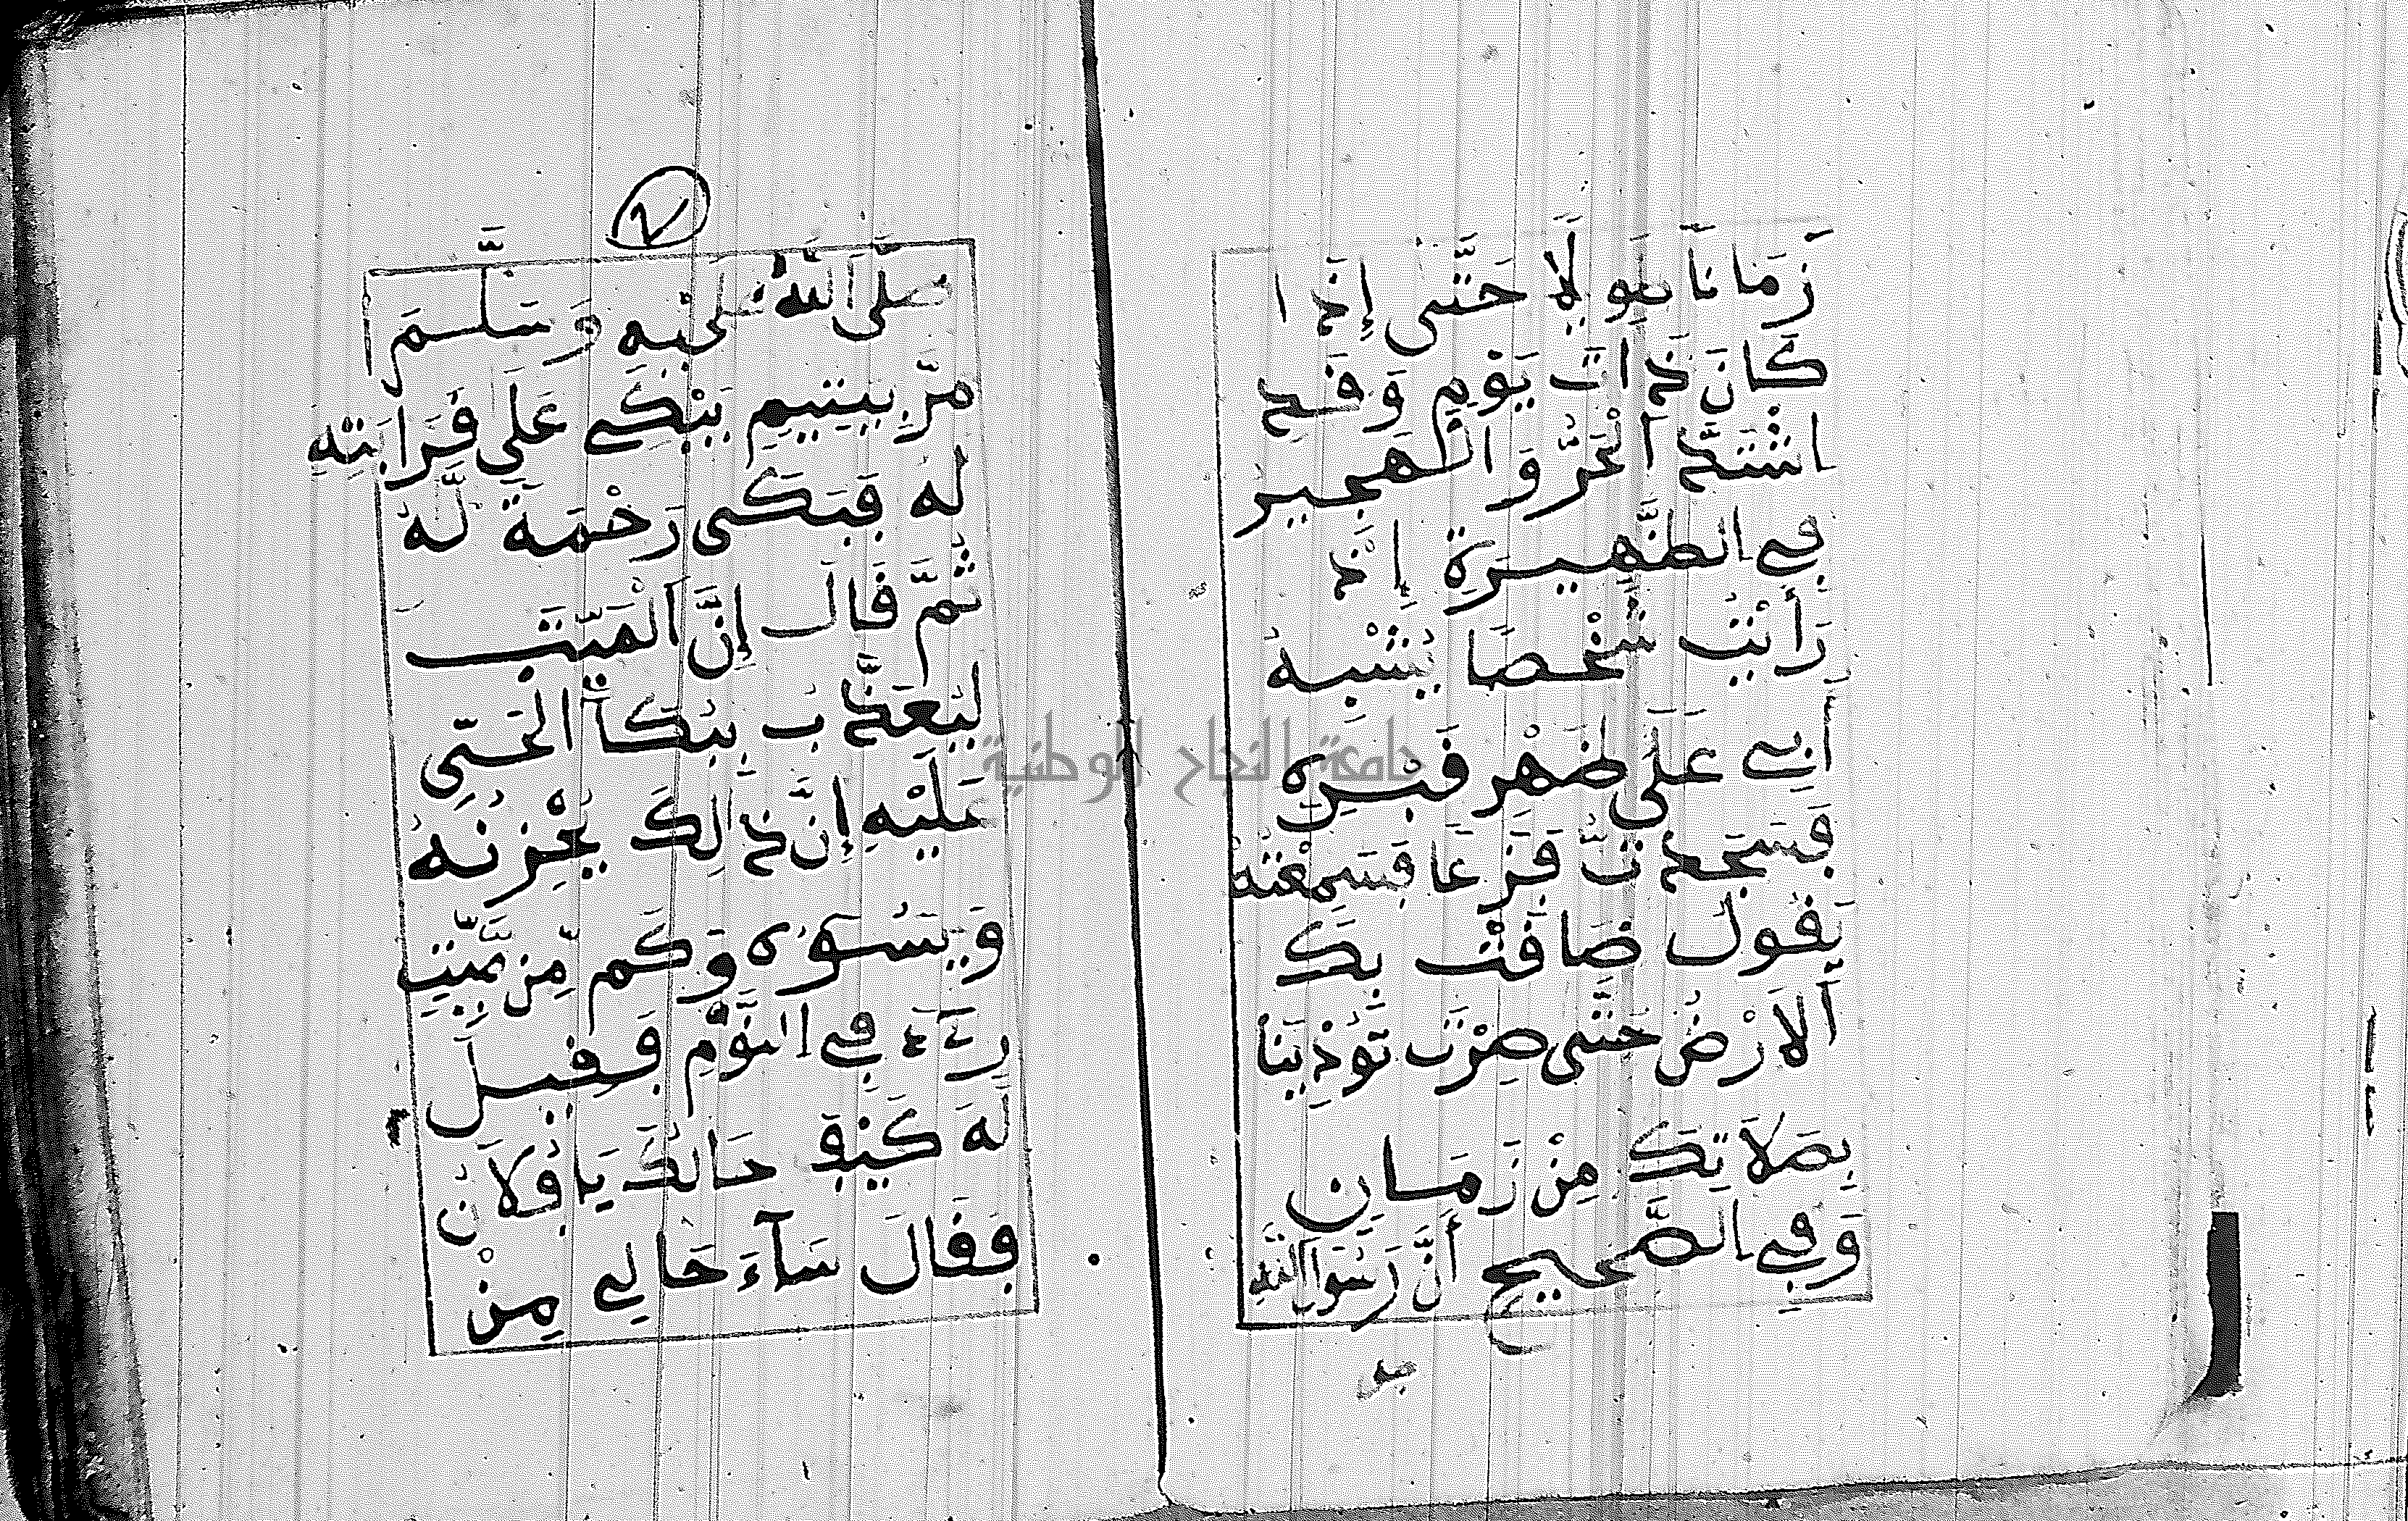 زَمَانًا طَوِيلًا حَتَّى إِذَا
كَانَ ذَاتَ يَوْمٍ وَقَدِ
اشْتَدَّ الْحَرُّ وَالْهَجِير
فِي الظَّهِيرَةِ إِذْ
رَأَيْتُ شَخْصًا يُشْبِهُ
أَبِي عَلَى ظَهْرِ قَبْرِهِ
فَسَجَدْتُ فَزَعًا فَسَمِعْتُهُ
يَقُولُ ضَاقَتْ بِكَ
الَارْضُ حَتَّى صِرْتَ تُوذِينَا
بِصَلَاتِكَ مِنْ زَمَانٍ
وَفِي الصَّحِيحِ أَنَّ رَسُولَ اللَّهِ
صلى
٧
صَلَّى اللَّهُ عَلَيْهِ وَسَلَّمَ
مَرَّ بِيَتِيمٍ يَبْكِي عَلَى قَرَابَتِهِ
لَهُ فَبَكَى رَحْمَةً لَّهُ
ثُمَّ قَالَ إِنَّ الْمَيِّتَ
لَيُعَذَّبُ بِبُكَآ الْحَيِّ
عَلَيْهِ إِنَّ ذَالِكَ يُحْزِنُهُ
وَيَسُوءُهُ وَكَم مِّن مَّيِّتٍ
رِءَءَ فِي النَّوْمِ فَقِيلَ
لَهُ كَيْفَ حَالُكَ يَا فُلَانُ
فَقَالَ سَآءَ حَالِي مِنْ
جامعة النجاح الوطنية